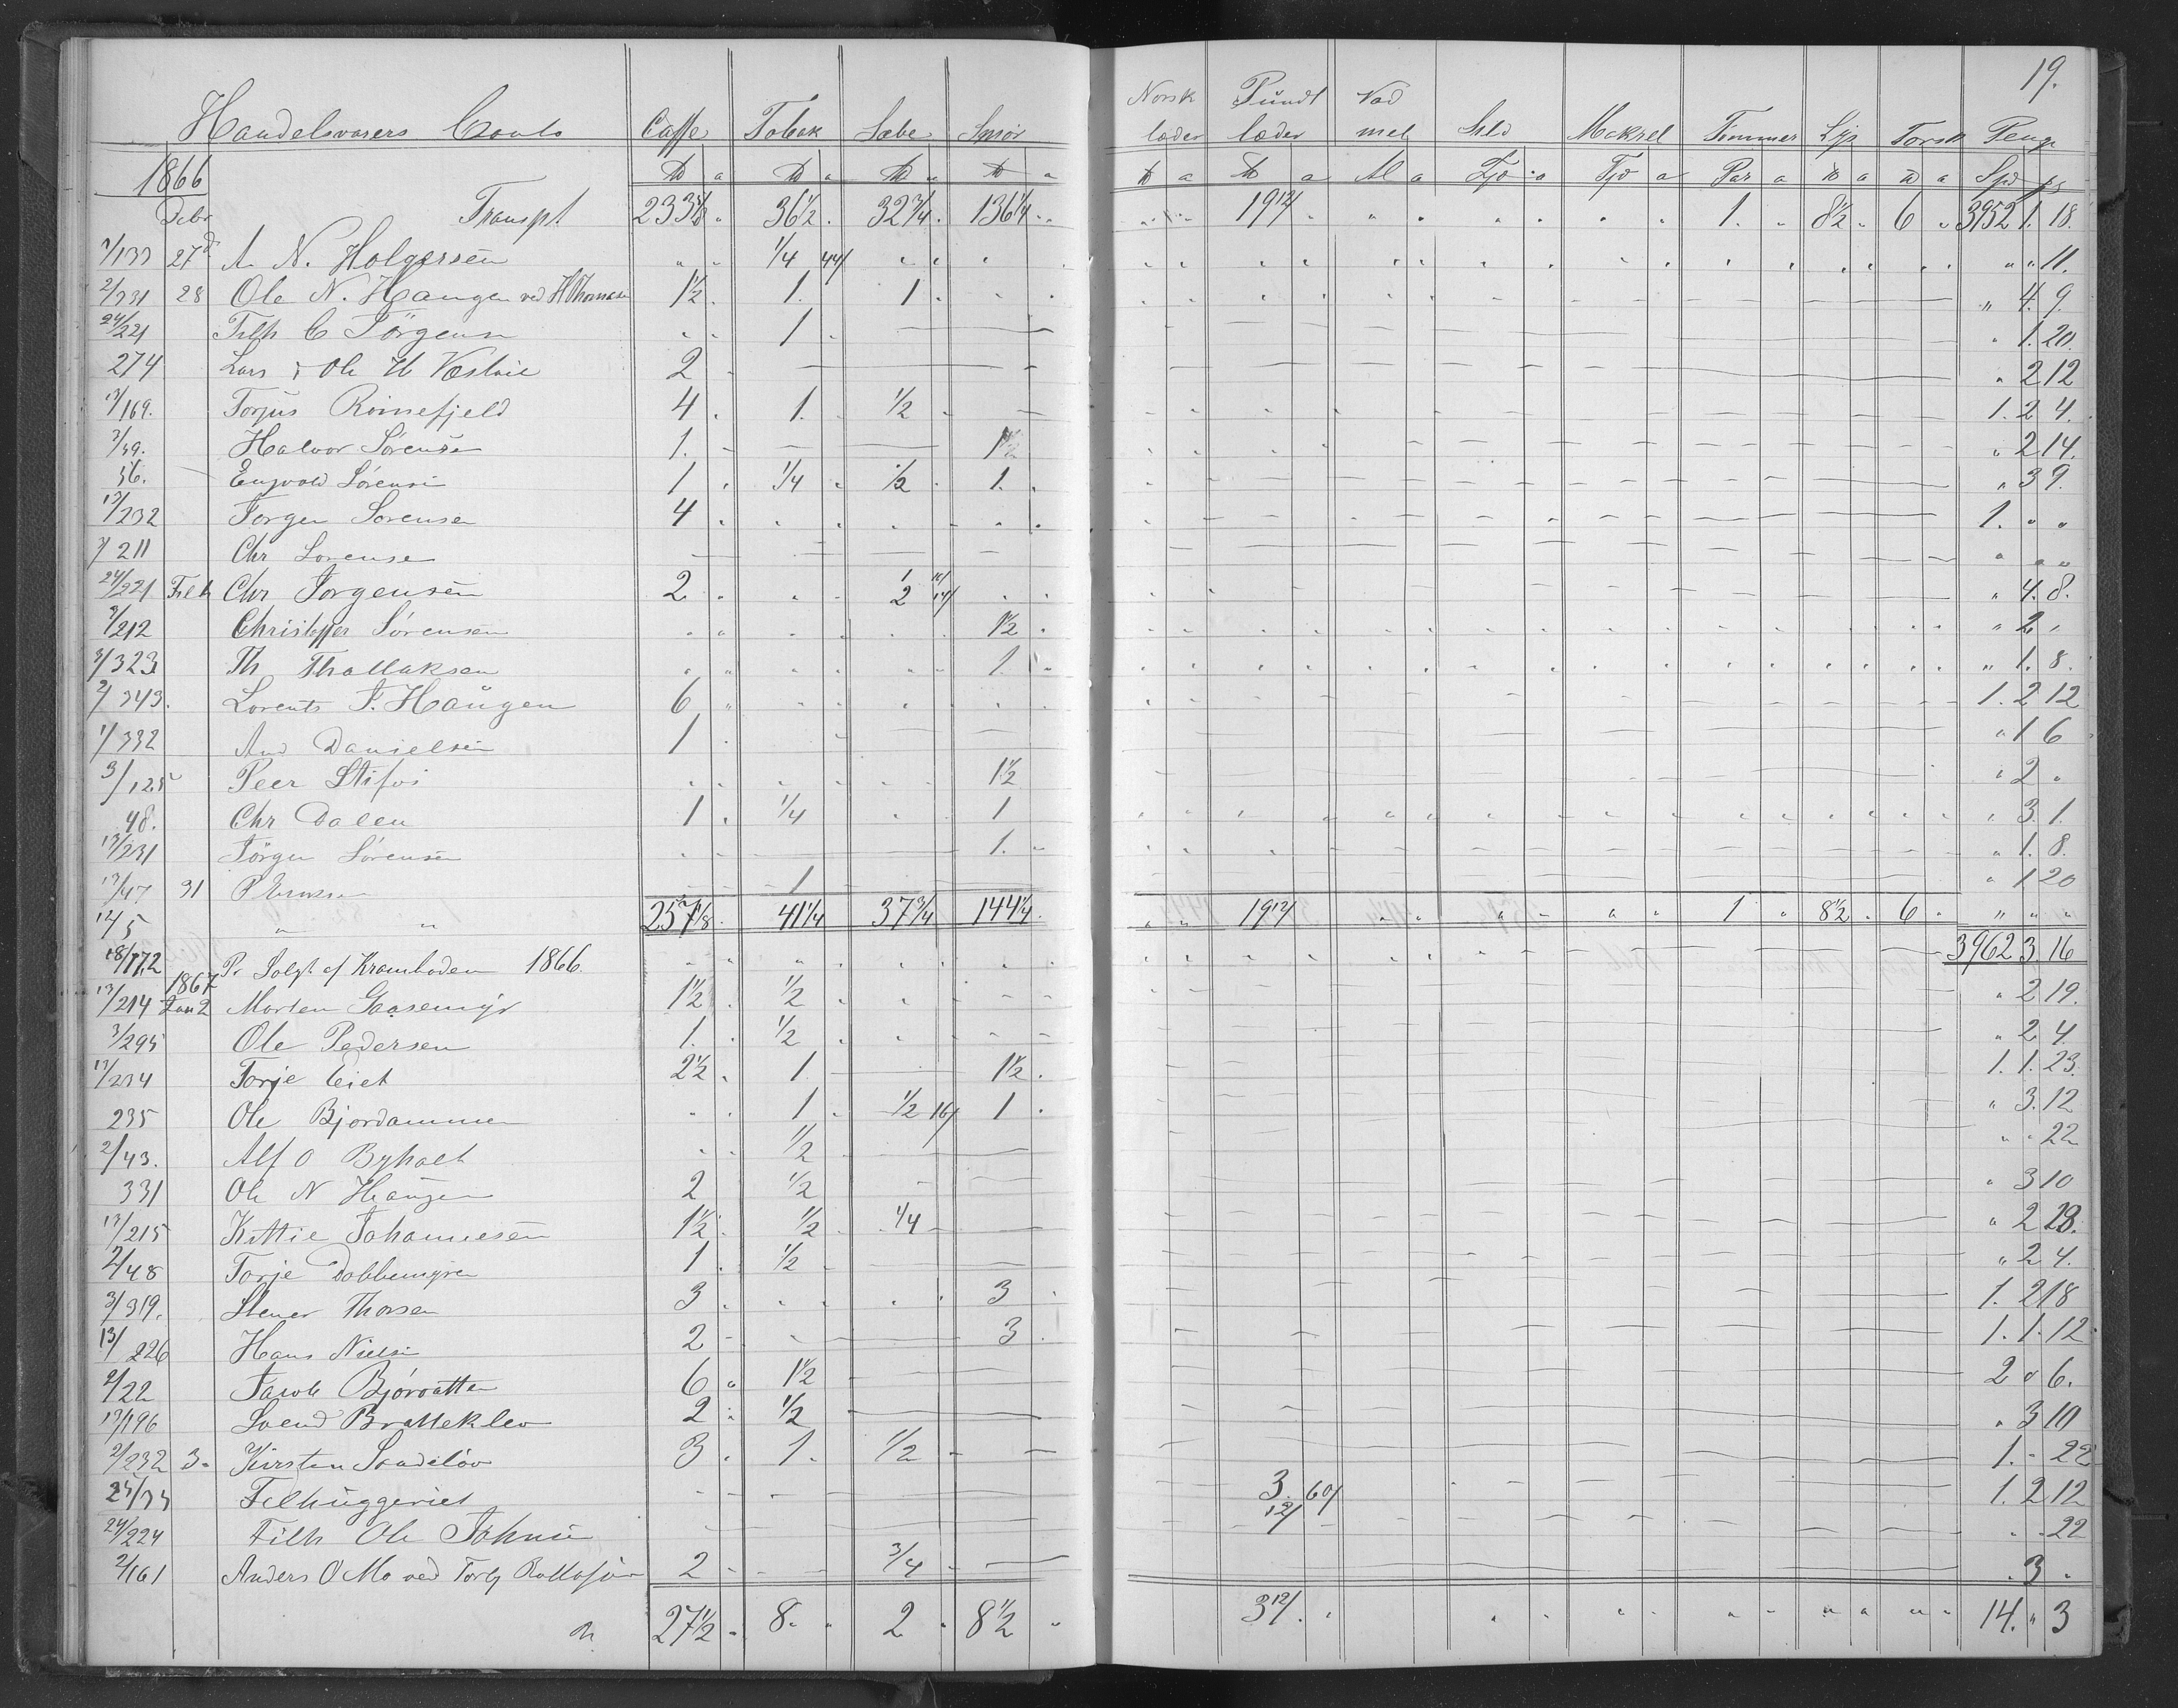 19.
Handelsvarers Conto Caffe Tobak Sæbe Smør Norsk læder Pundt læder Vadmel Sild Makrel Tømmer Lys Torsk Penge
1866 ₶ a ₶ a ₶ a ₶ a ₶ a ₶ a Al a Tjd a Tjd a Par a ₶ a ₶ a Spd
Debr Transpt 36 1/2 32 3/4 136 1/4 19 12/ 1. 8 1/2 6 3952 1. 18.
27 A. N. Holgersen 1/4 44/ 11.
2/331 28 Ole N. Haugen ved HThomasen 1 1/2 1. 1 4. 9.
24/221 Filh C Jörgensen 1 1. 20.
274 Lars & Ole 2 2 12
13/169. Torjus Roinefjeld 4 1. 1/2 1. 2 4.
3/39. Halvor Sørensen 1. 1 1/2 2 14.
36. Engvold Sörensen 1 1/4 1/2 1. 3 9.
13/232 Jørgen Sørensen 4 1.
3/211 Chr Sørensen
24/221 Filh Chr Jørgensen 2 4. 8.
3/212 Christoffer Sørensen 1 1/2 2
3/323 Th Thollaksen 1. 1. 8.
2/343. Lorents J. Haugen 6 1. 2 12
1/332 And Danielsen 1 1 6
3/125 Peer Stifoi 1 1/2 2
48. Chr Dalen 1 1/4 1 3. 1.
13/231 Jörgen Sörensen 1. 1. 8.
13/47 31 1 1 20
12/5 " " 257 1/8 41 1/4 37 3/4 144 1/4 19 12/ 1 8 1/2 6
18/172 Pr Solgt af Kramboden 1866 3962 3. 16
1867
13/214 Jan 2 Morten Gaasemyr 1 1/2 1/2 2 19.
3/295 Ole Pedersen 1. 1/2 2 4.
13/234 Torje Eiet 2 1/2 1 1 1/2 1. 1. 23.
235 Ole Bjordammen 1 1/2 16/ 1 3. 12
2/43. Alf O Byholt 1/2 22
331 Ole N Haugen 2 1/2 3 10
13/215 Kittie Johannesen 1 1/2 1/2 1/4 2 23.
2/48 Torje Dobbemyren 1 1/2 2 4.
3/319. Stener Thorsen 3 3 1. 2 18
13/226 Hans Nielsen 2 3 1. 1. 12
2/22 Jacob Bjørvatten 6 1 1/2 2 " 6.
13/196 Svend Bratteklev 2 1/2 3 10
2/232 3. Kirsten 3 1. 1/2 1. - 22
24/33 Filhuggeriet 3. 60/ 1. 2 12
24/224 Filh Ole Johnsen 12/ 22
2/161 Anders O Mo ved 2 3/4 3
27 1/2 8. 2 8 1/2 3 12/ 14. " 3